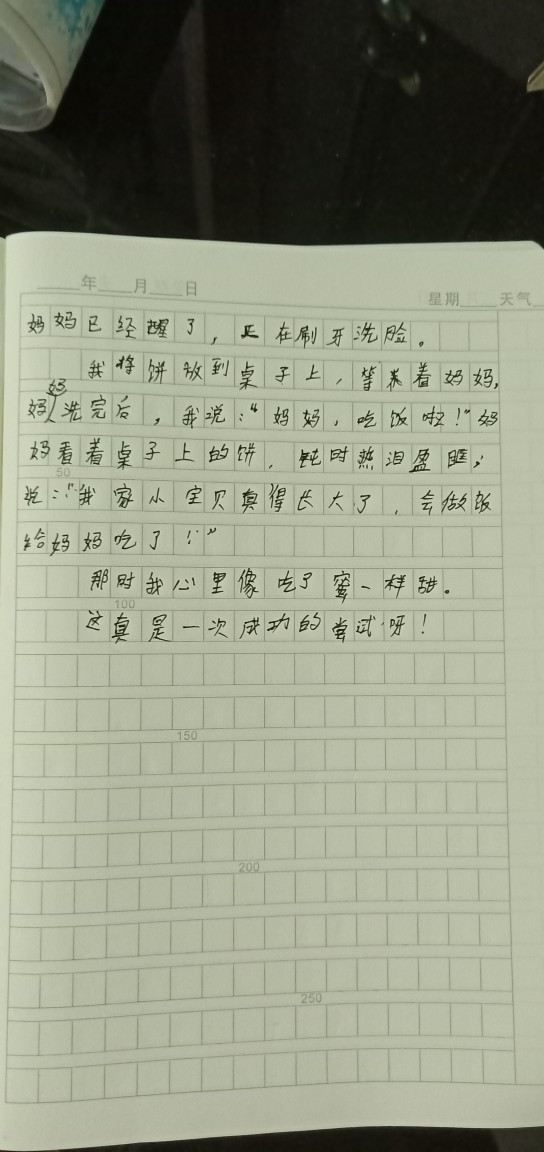 年 月 日
星期 天气
妈妈已经醒了，正在刷牙洗脸。
我将饼放到桌子上，等着妈妈，
妈妈洗完后，我说：“妈妈，吃饭啦！”妈
妈看着桌子上的饼，钝时热泪盈眶，
50
说：“我家小宝贝真得长大了，会做饭
给妈妈吃了！”
那时我心里像吃了蜜一样甜。
100
这真是一次成功的尝试呀！
150
200
250